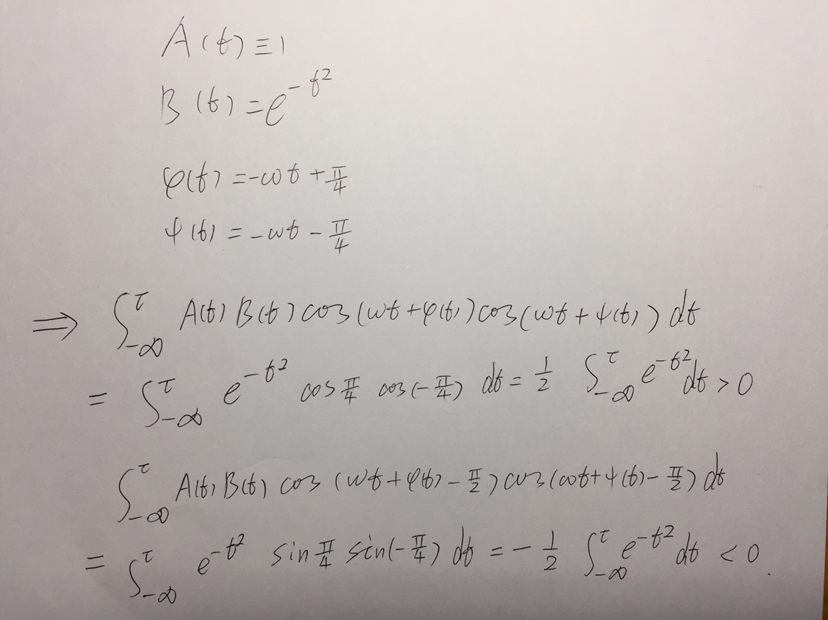 A(t) ≡ 1
B(t) = e^{-t^2}
φ(t) = -ωt + π/4
ψ(t) = -ωt - π/4
⟹ ∫_{-∞}^{τ} A(t) B(t) cos(ωt + φ(t)) cos(ωt + ψ(t)) dt
= ∫_{-∞}^{τ} e^{-t^2} cos π/4 cos(-π/4) dt = 1/2 ∫_{-∞}^{τ} e^{-t^2} dt > 0
∫_{-∞}^{τ} A(t) B(t) cos (ωt + φ(t) - π/2) cos(ωt + ψ(t) - π/2) dt
= ∫_{-∞}^{τ} e^{-t^2} sin π/4 sin(-π/4) dt = - 1/2 ∫_{-∞}^{τ} e^{-t^2} dt < 0.